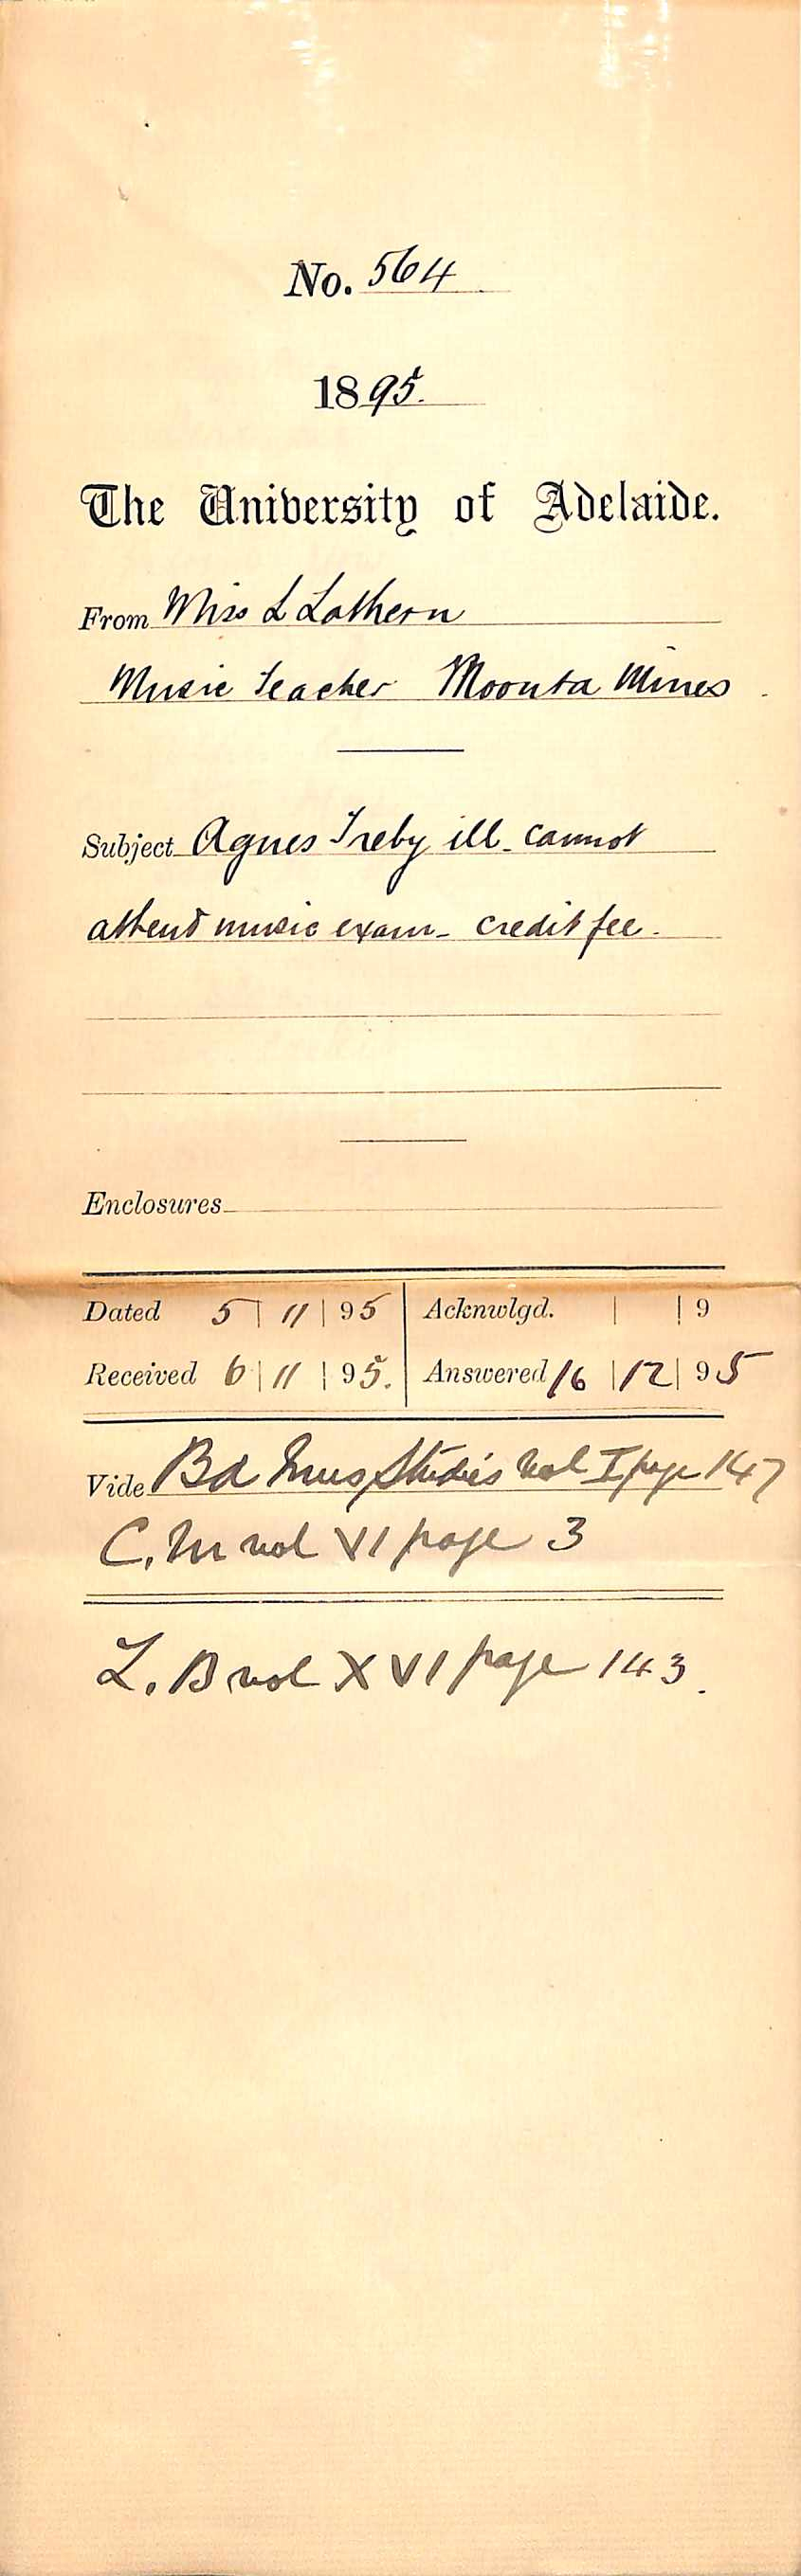 No. 564
1895.
The University of Adelaide.
From Miss L Lathern
Music Teacher Moonta Mines
Subject Agnes Treby ill - cannot
attend music exam - credit fee.
Enclosures
Dated 5 | 11 | 95 Acknwlgd. | | 9
Received 6 | 11 | 95. Answered 16 | 12 | 95
Vide Bd Mus Studies vol I page 147
C. M vol VI page 3
L. B vol XVI page 143.